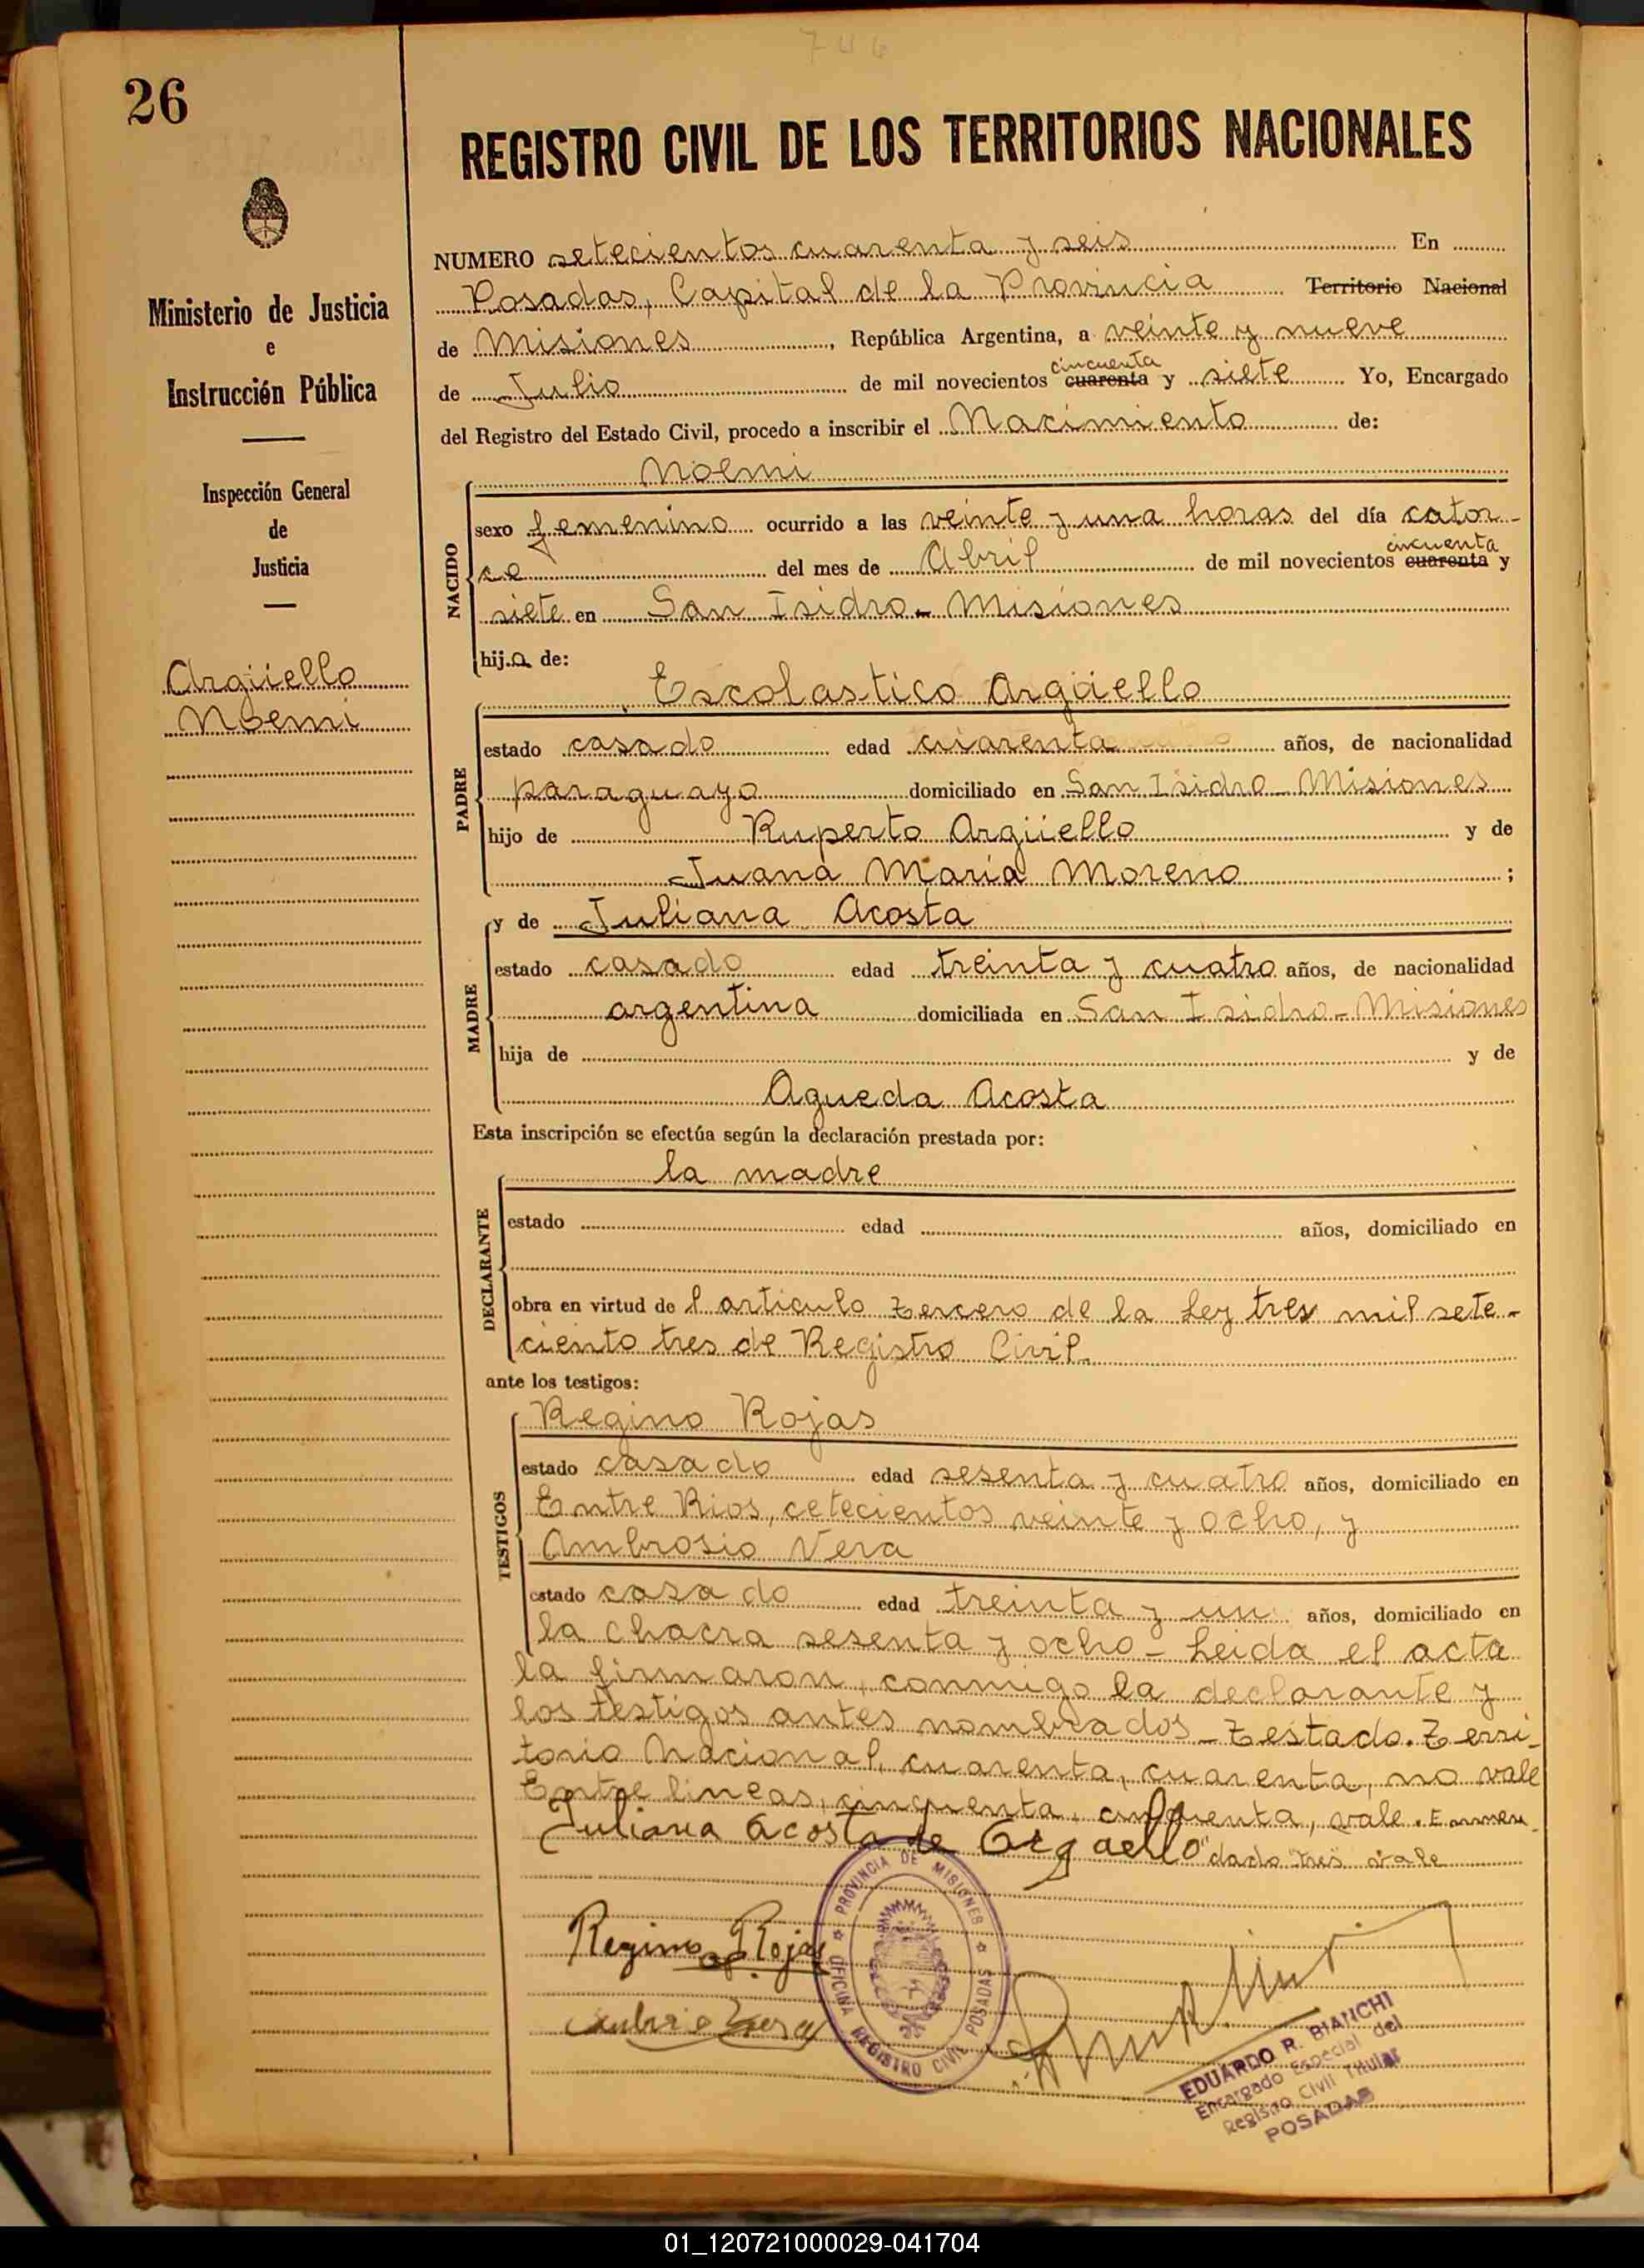 746
26
REGISTRO CIVIL DE LOS TERRITORIOS NACIONALES
Ministerio de Justicia
e
Instrucción Pública
Inspección General
de
Justicia
Argüello
Noemi
NUMERO setecientos cuarenta y seis En
Posadas, Capital de la Provincia Territorio Nacional
de Misiones, República Argentina, a veinte y nueve
cincuenta
de Julio de mil novecientos cuarenta y siete Yo, Encargado
del Registro del Estado Civil, procedo a inscribir el Nacimiento de:
Noemi
NACIDO
sexo femenino ocurrido a las veinte y una horas del día cator-
cincuenta
ce del mes de Abril de mil novecientos cuarenta y
siete en San Isidro - Misiones
hija de:
Escolastico Argüello
PADRE
estado casado edad cuarenta años, de nacionalidad
paraguayo domiciliado en San Isidro - Misiones
hijo de Ruperto Argüello y de
Juana María Moreno ;
MADRE
y de Juliana Acosta
estado casado edad treinta y cuatro años, de nacionalidad
argentina domiciliada en San Isidro - Misiones
hija de y de
Agueda Acosta
Esta inscripción se efectúa según la declaración prestada por:
DECLARANTE
la madre
estado edad años, domiciliado en
obra en virtud de l articulo tercero de la Ley tres mil sete-
ciento tres de Registro Civil.
ante los testigos:
TESTIGOS
Regino Rojas
estado casado edad sesenta y cuatro años, domiciliado en
Entre Rios, cetecientos veinte y ocho, y
Ambrosio Vera
estado casado edad treinta y un años, domiciliado en
la chacra sesenta y ocho - Leida el acta
la firmaron, conmigo la declarante y
los testigos antes nombrados - Testado. Terri-
torio Nacional, cuarenta, cuarenta, no vale
Entre lineas, cincuenta, cincuenta, vale. Enmen-
dado "tres" vale
Juliana Acosta de Argaello
Regino Rojas
PROVINCIA DE MISIONES
OFICINA REGISTRO CIVIL POSADAS
EDUARDO R. BIANCHI
Encargado Especial del
Registro Civil Titular
POSADAS
01_120721000029-041704